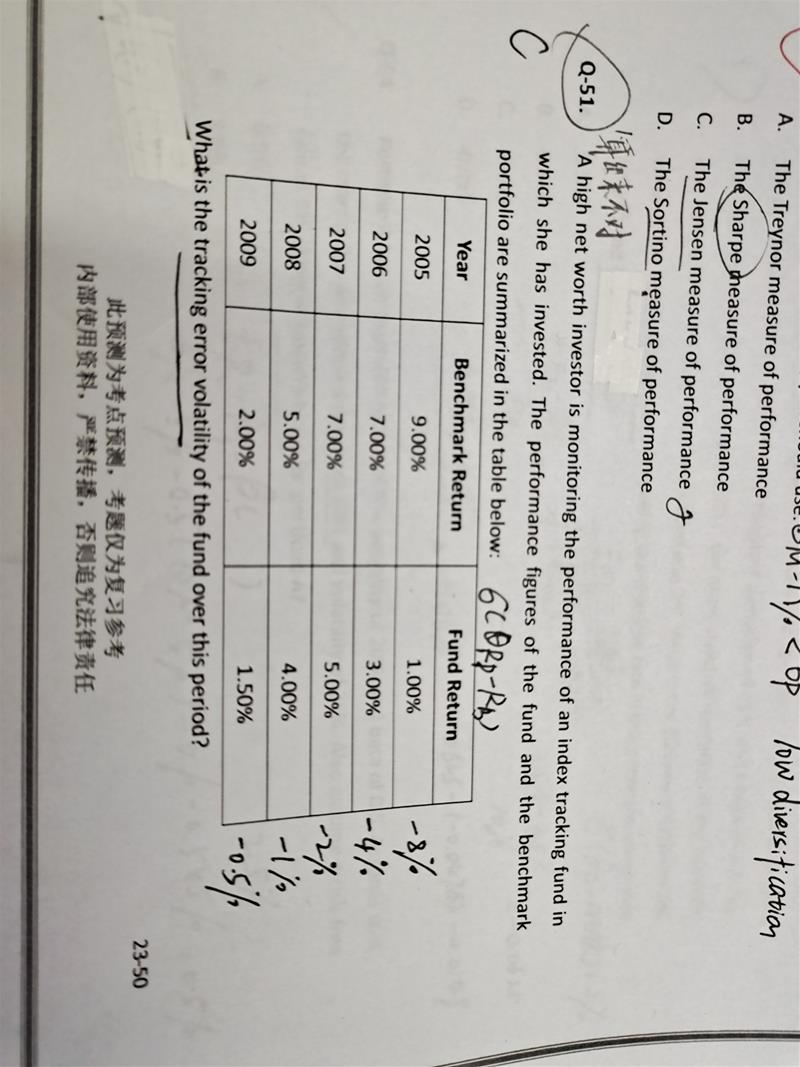 M-1% < σp low diversification
A. The Treynor measure of performance
B. The Sharpe measure of performance
C. The Jensen measure of performance
D. The Sortino measure of performance
算出来不对
C
Q-51. A high net worth investor is monitoring the performance of an index tracking fund in
which she has invested. The performance figures of the fund and the benchmark
portfolio are summarized in the table below:
Year Benchmark Return Fund Return
2005 9.00% 1.00% -8%
2006 7.00% 3.00% -4%
2007 7.00% 5.00% -2%
2008 5.00% 4.00% -1%
2009 2.00% 1.50% -0.5%
What is the tracking error volatility of the fund over this period?
此预测为考点预测，考题仅为复习参考
内部使用资料，严禁传播，否则追究法律责任
23-50